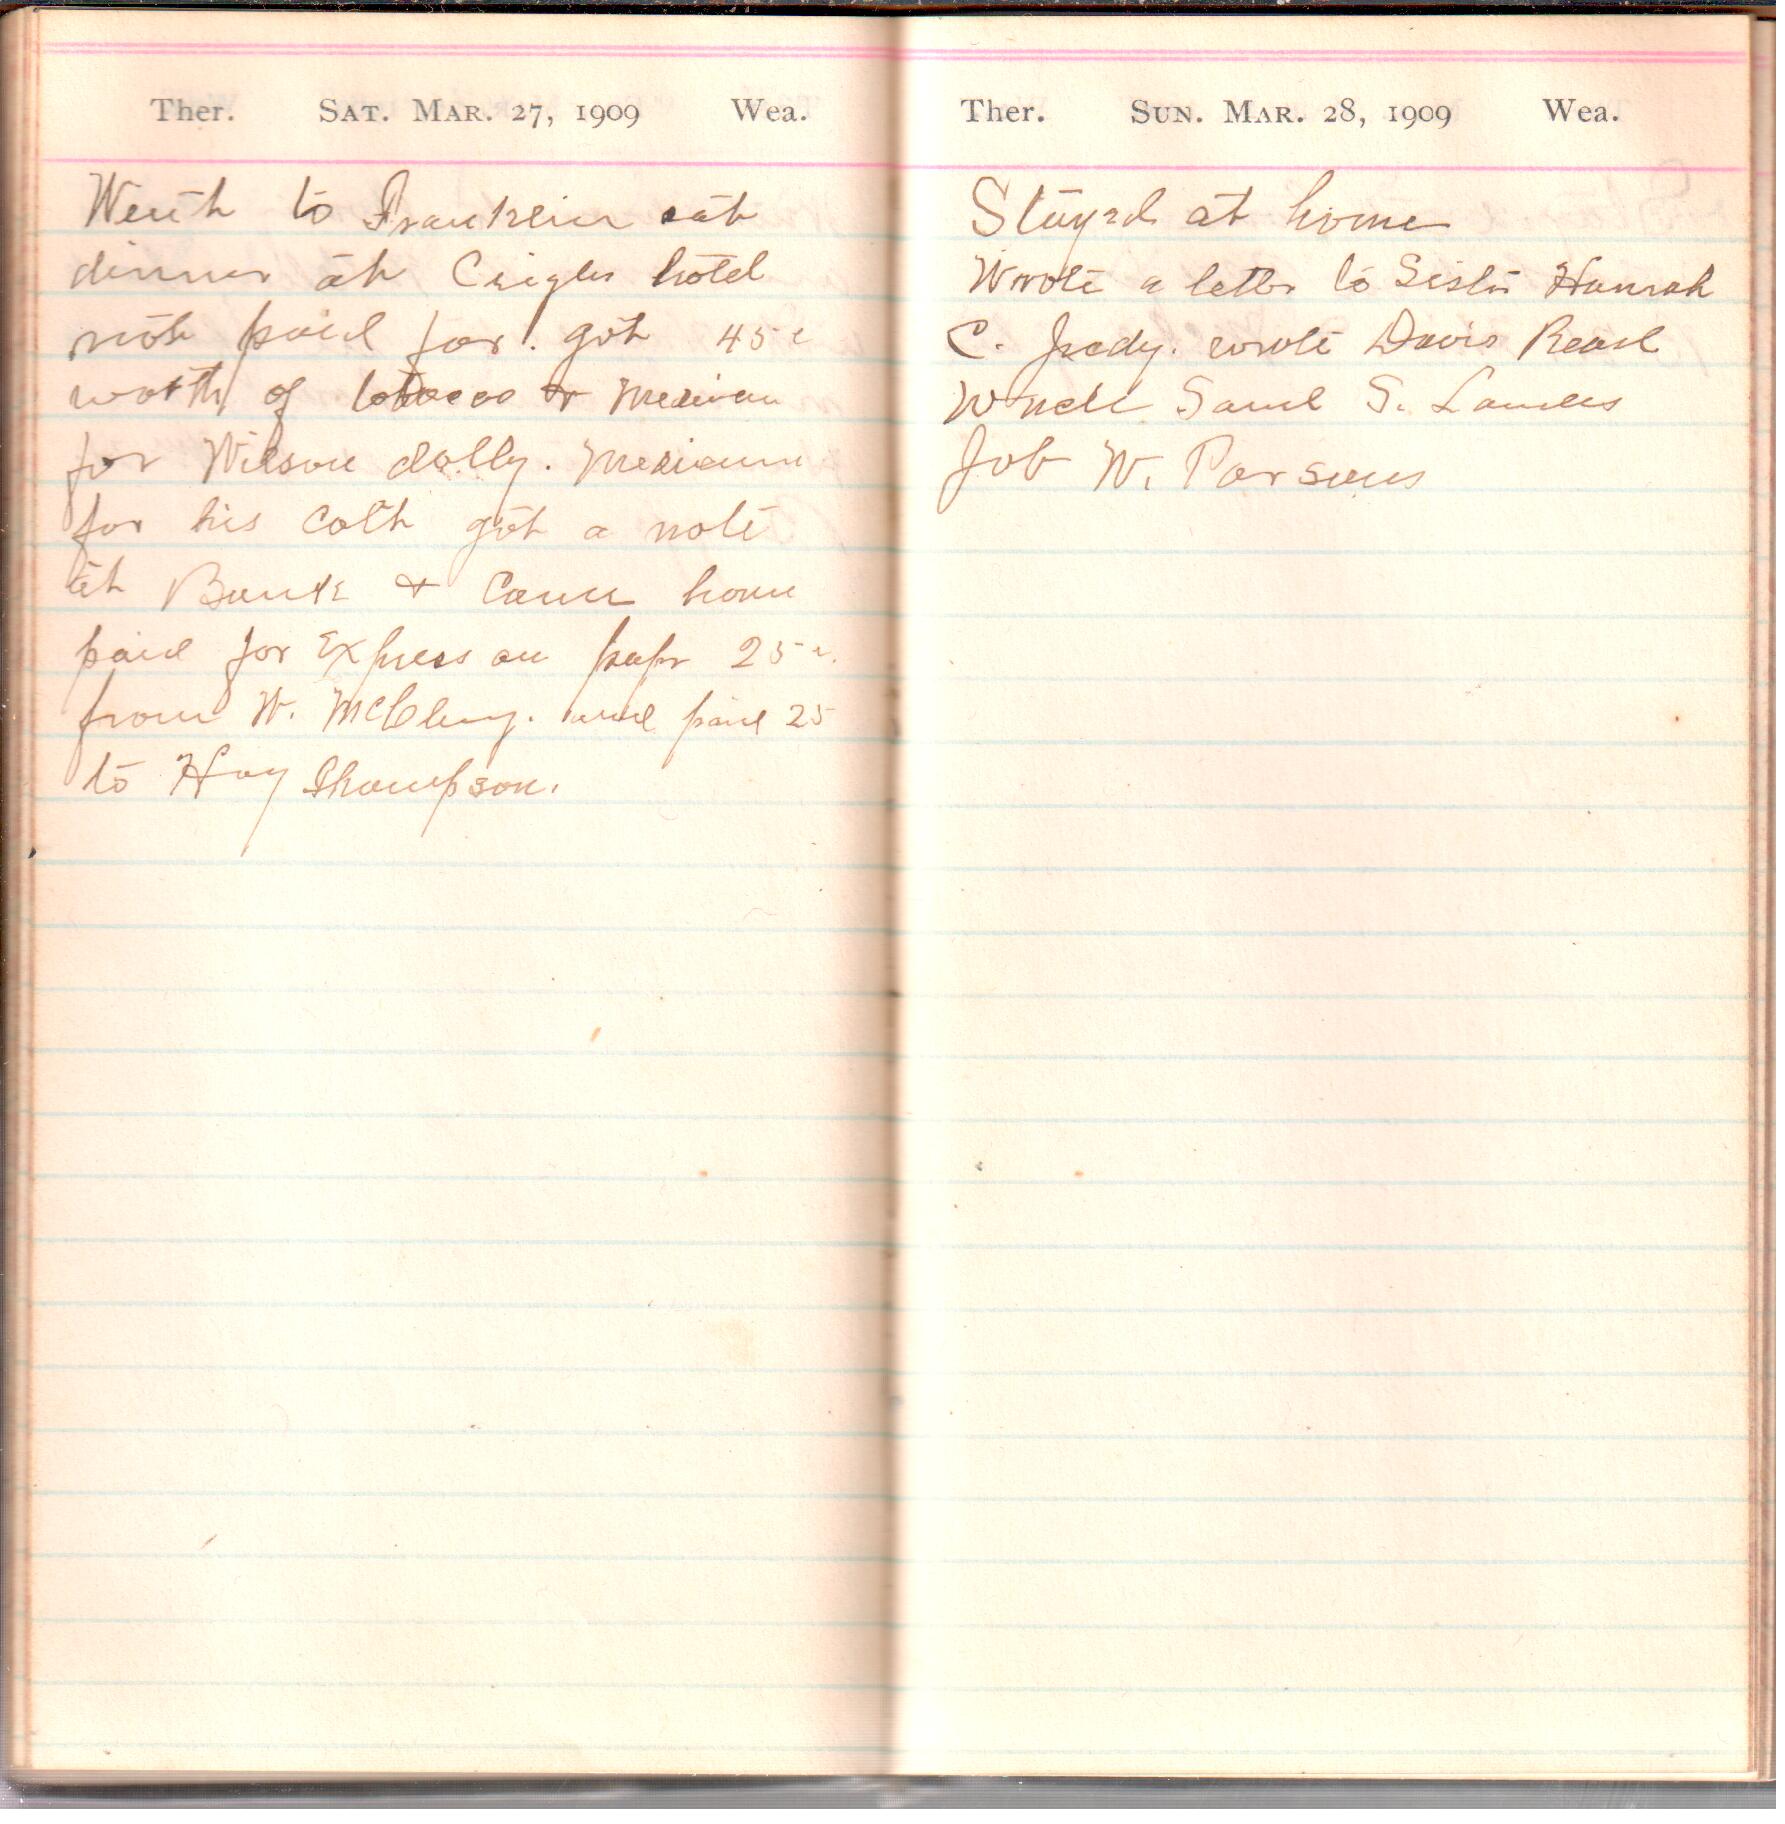 Ther. SAT. MAR. 27, 1909 Wea.
Went to Franklin eat
dinner at hotel
not paid for. got 45 c
worth of tobacco &
for Wilson dolly.
for his colt got a note
at Bank & Came home
paid for Express on papr 25 c.
from W. McClung. and paid 25
to Hoy Thompson.
Ther. SUN. MAR. 28, 1909 Wea.
Stayed at home
Wrote a letter to Sister Hannah
C. Judy. wrote Davis
Saml S.
Job W. Parsons